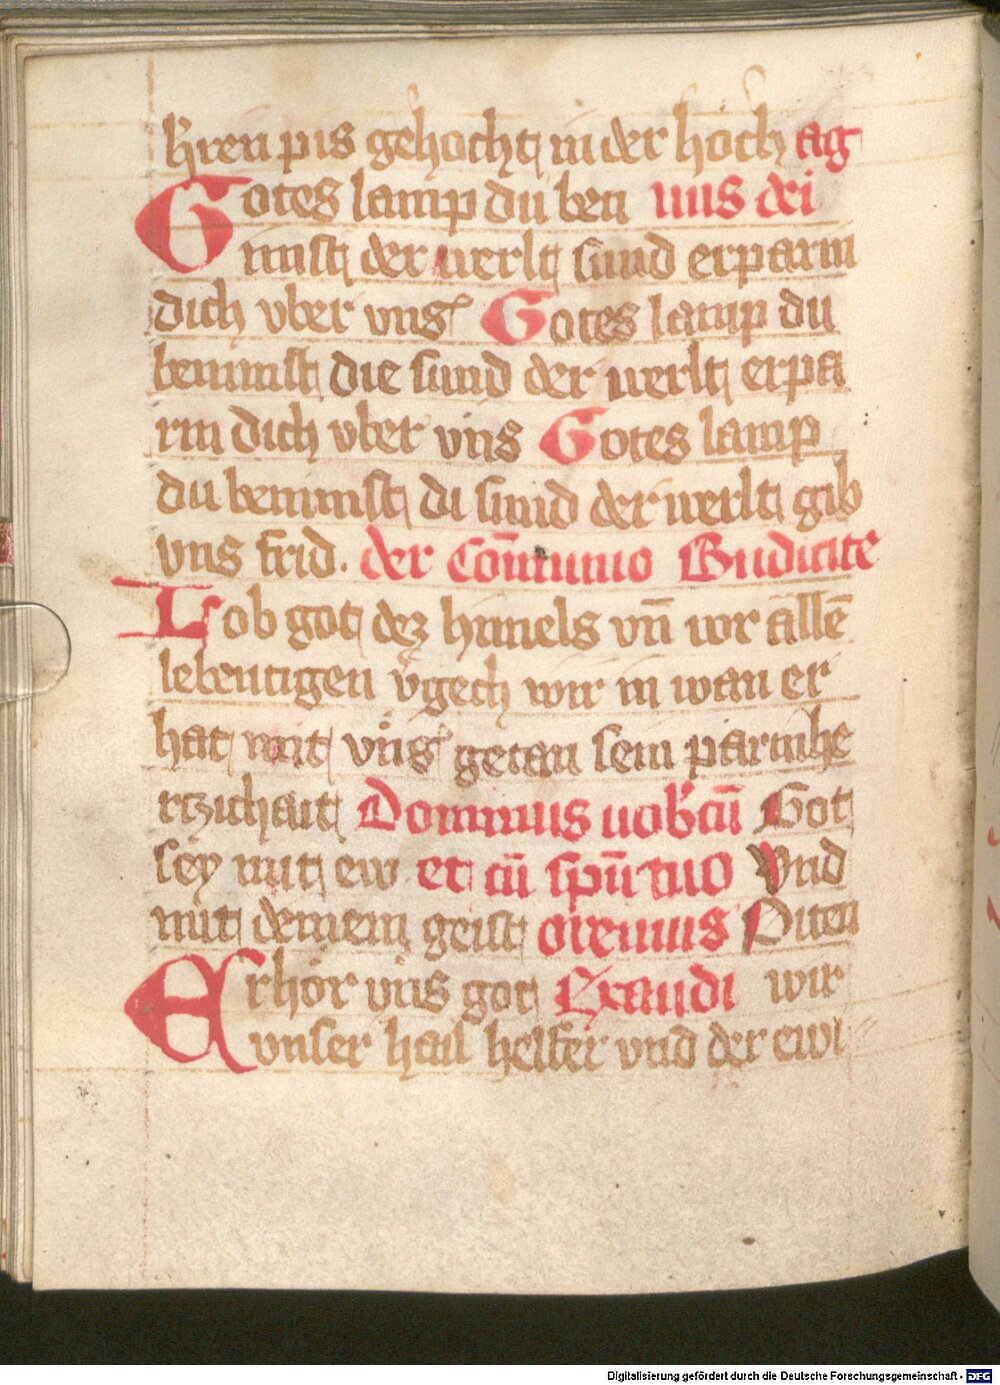 hren pis gehocht in der hoch ag
Gotes lamp du ben nus dei
nimst der werlt sund erparm
dich vber vns Gotes lamp du
benimst die sund der werlt erpa
rm dich vber vns Gotes lamp
du benimst di sund der werlt gib
vns frid. der Cōmunio Budicite
Lob got dez himels vn̄ vor allē
lebentigen v̄gech wir in wan er
hat mit vns getan sein parmhe
rtzichait Dominus uobcū Got
sey mit ew et cū spū tuo Vnd
mit deinem geist oremus Piten
Erhor vns got Exaudi wir
vnser hail helfer vnd der ewi
Digitalisierung gefördert durch die Deutsche Forschungsgemeinschaft - DFG